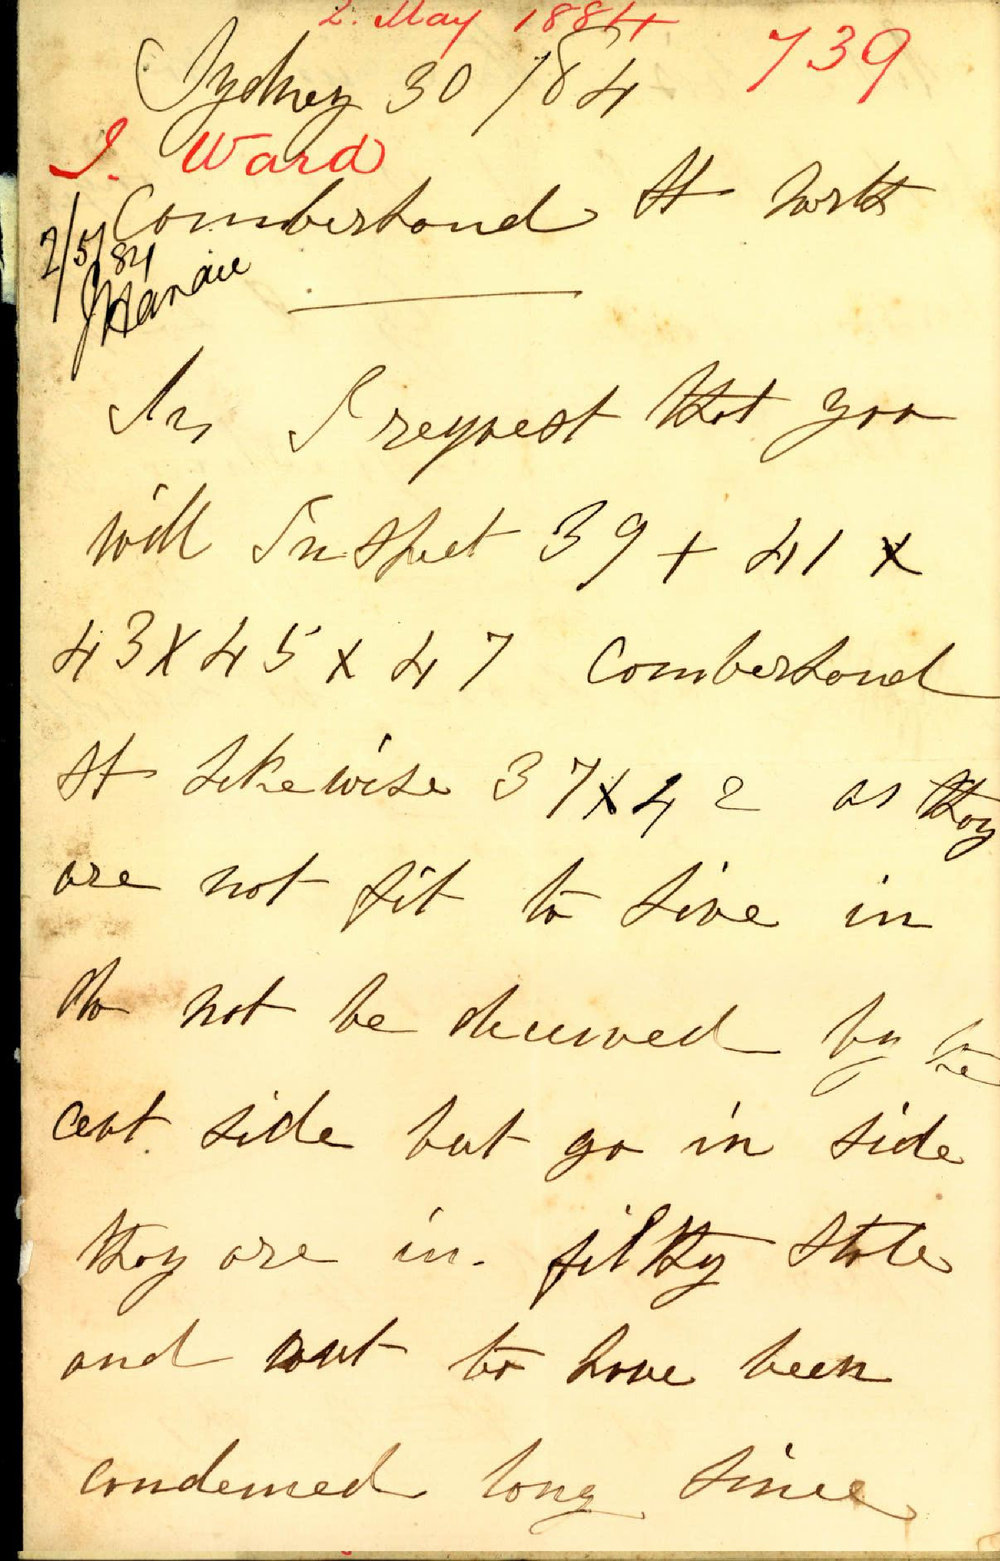 2. May 1884
739
Sydney 30 / 84
J. Ward
Comberland St North
2/5/84
Sir I request that you
will Inspect 39 + 41 x
43 x 45 x 47 Comberland
St likewise 37 x 42 as they
are not fit to live in
do not be deceived by the
out side but go in side
they are in. filthy state
and out to have been
condemed long since